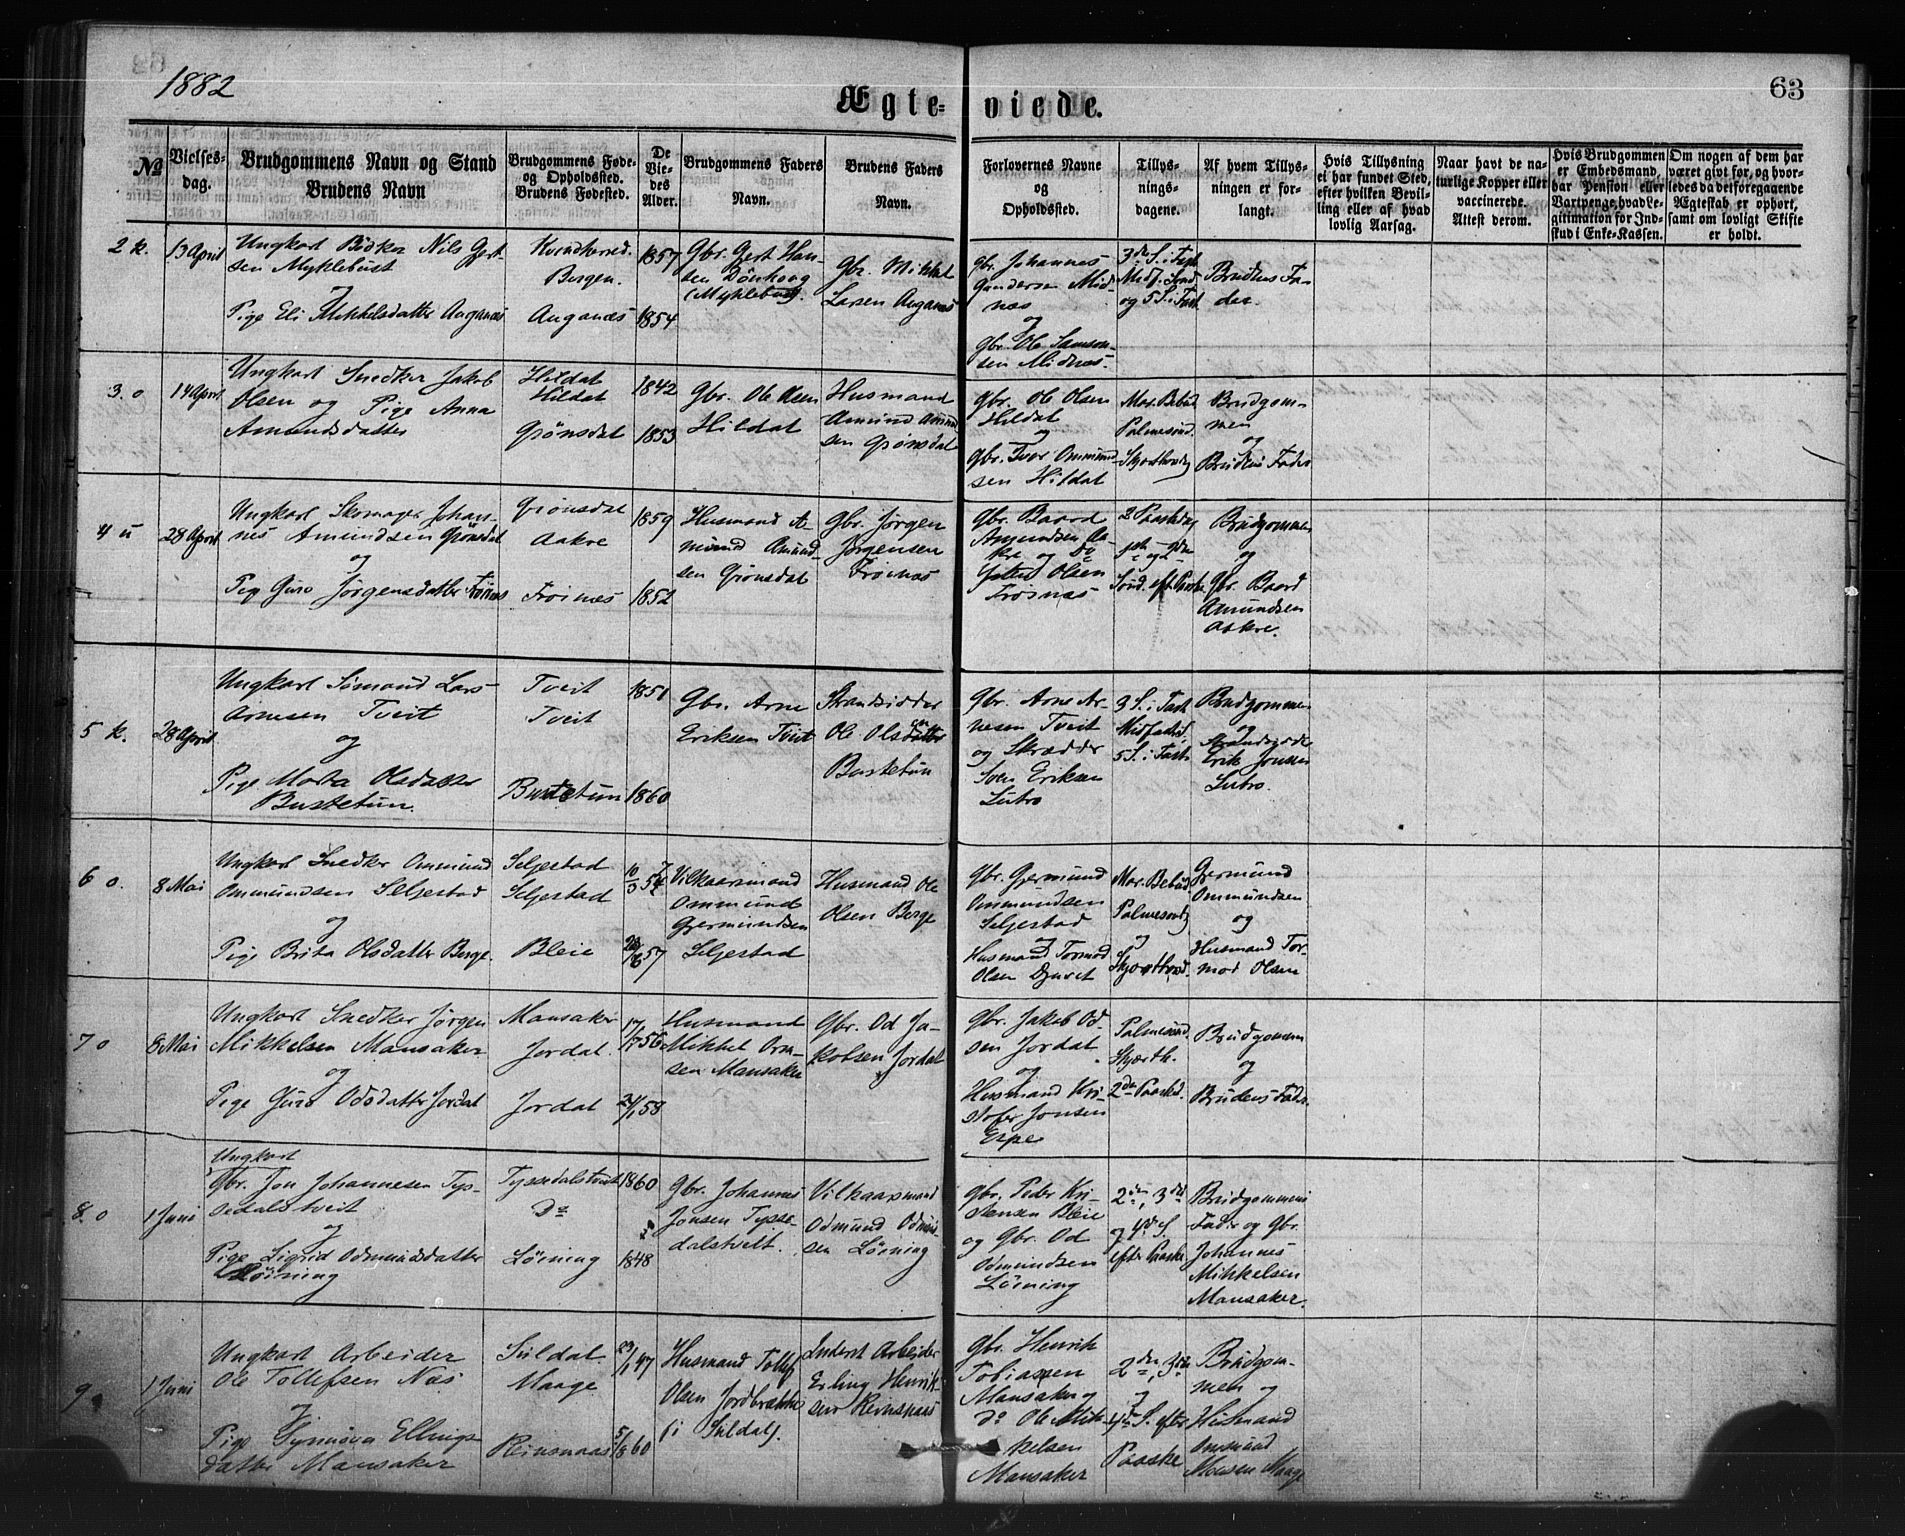 1882
63
Ægte-
viede.
No
Vielses-
dag.
Brudgommens Navn og Stand
Brudens Navn
Brudgommens Føde-
og Opholdssted.
Brudens Fødested.
De
Vie-
des
Alder.
Brudgommens Faders
Navn.
Brudens Faders
Navn.
Forlovernes Navne
og
Opholdssted.
Tillys-
nings-
dagene.
Af hvem Tillys-
ningen er for-
langt.
Hvis Tillysning
ei har fundet Sted,
efter hvilken Bevil-
ling eller af hvad
lovlig Aarsag.
Naar havt de na-
turlige Kopper eller
vaccinerede.
Attest derom.
Hvis Brudgommen
er Embedsmand,
har Pension eller
Vartpenge, hvad Le-
gitimation for Ind-
skud i Enke-Kassen.
Om nogen af dem har
været givt før, og hvor-
ledes da det foregaaende
Ægteskab er ophørt,
samt om lovligt Skifte
er holdt.
2 k.
13 April
Ungkarl Bödker Nils Gjert-
sen Myklebust
og
Pige Eli Mikkelsdatter Auganæs
Kvindherred
Bergen.
Auganæs
1857
1854
Gbr. Gert Han-
sen
(Myklebust).
Gbr. Mikkel
Larsen Auganæs
gbr. Johannes
Gundersen Mid-
næs
og
gbr. Ole Samson-
sen Midnæs.
3de S. i Fast.
Midf. Sønd.
og 5 S. i Fast.
Brudens Fa-
der.
3. o
14 April
Ungkarl Snedker Jakob
Olsen og Pige Anna
Amundsdatter
Hildal
Hildal
Grönsdal
1842
1853
Gbr. Ole Olsen
Hildal
Husmand
Amund Amund-
sen Grönsdal
gbr. Ole Olsen
Hildal
og
gbr. Ivar Ommund-
sen Hildal
Mar. Bebud
Palmesønd.
Skjærthorsdg
Brudgom-
men
og
Brudens Fader
4 u
28 April
Ungkarl Skomager Johan-
nes Amundsen Grönsdal
og
Pige Guro Jörgensdatter Fröines
Grönsdal
Aakre
Fröinæs
1859
1852
Husmand A-
mund Amund-
sen Grönsdal
Gbr. Jörgen
Jörgensen
Fröinæs
Gbr. Baard
Amundsen Aa-
kre og Do
Olsen
Fröinæs
2 Paaskedag
1ste og 2den
Sønd. eft. Paaske
Brudgommen
og
Gbr. Baard
Amundsen
Aakre.
5 k.
28 April
Ungkarl Simond Lars
Arnesen Tveit
og
Pige Marta Olsdatter
Bustetun.
Tveit
Tveit
Bustetun
1851
1860
Gbr. Arne
Eriksen Tveit
Strandsidder
Ole Olsen
Bustetun
gbr. Arne Ar-
nesen Tveit
og Skrædder
Sven Eriksen
Lutro
3 S. i Fast
Midfastsd.
5 S. i Fast.
Brudgommen
og
Strandsidder
Erik Jonsen
Lutro.
6 o.
8 Mai
Ungkarl Snedker Ommund
Ommundsen Seljestad
og
Pige Brita Olsdatter Berge.
Seljestad
Seljestad
Bleie
57
Vilkaarsmand
Ommund
Gjermundsen
Seljestad
Husmand Ole
Olsen Berge
Gbr. Gjermund
Ommundsen
Seljestad
og
Husmand Tormod
Olsen
Mar. Bebud
Palmesøndg
og
Skjærthorsd.
Gjermund
Ommundsen
og
Husmand Tor-
mod Olsen
7 o
8 Mai
Ungkarl Snedker Jörgen
Mikkelsen Mansaker
og
Pige Guro Odsdatter Jordal
Mansaker
Jordal.
Jordal
17/7 56
24/1 58
Husmand
Mikkel Orm-
sen Mansaker
Gbr. Od Ja-
kobsen Jordal
Gbr. Jakob Od-
sen Jordal
og
Husmand Kri-
stofer Jonsen
Espe
Palmesønd.
Skjærth.
2den Paasked.
Brudgommen
og
Brudens Fader.
8. o
1 Juni
Ungkarl
Gbr. Jon Johannesen Tys-
sedalstveit
og
Pige Sigrid Odmundsdatter
Löining
Tyssedalstveit
Do
Löining
1860
1848
Gbr. Johannes
Jonsen Tysse-
dalstveit.
Vilkaarsmand
Odmund Odmund-
sen Löining
gbr. Peder Kri-
stensen Bleie
og Gbr. Od
Odmundsen
Löining
2den, 3die
og 4de S.
efter Paaske
Brudgommens
Fader og Gbr.
Johannes
Mikkelsen
Mansaker.
9.
1 Juni
Ungkarl Arbeider
Ole Tollefsen Næs
og
Pige Synnöva Ellings-
datter Mansaker
Suldal
Maage
Reinsnaas
23/1 47
5/8 60
Husmand Tollef
Olsen Jordbrække
(i Suldal).
Inderst Arbeider
Erling Henrik-
sen Reinsnaas
gbr. Henrik
Tobiassen
Mansaker og
Do Ole Mik-
kelsen
Mansaker
2den, 3die
og
4de S. efter
Paaske
Brudgom-
men og
Husmand
Ommund
Maage